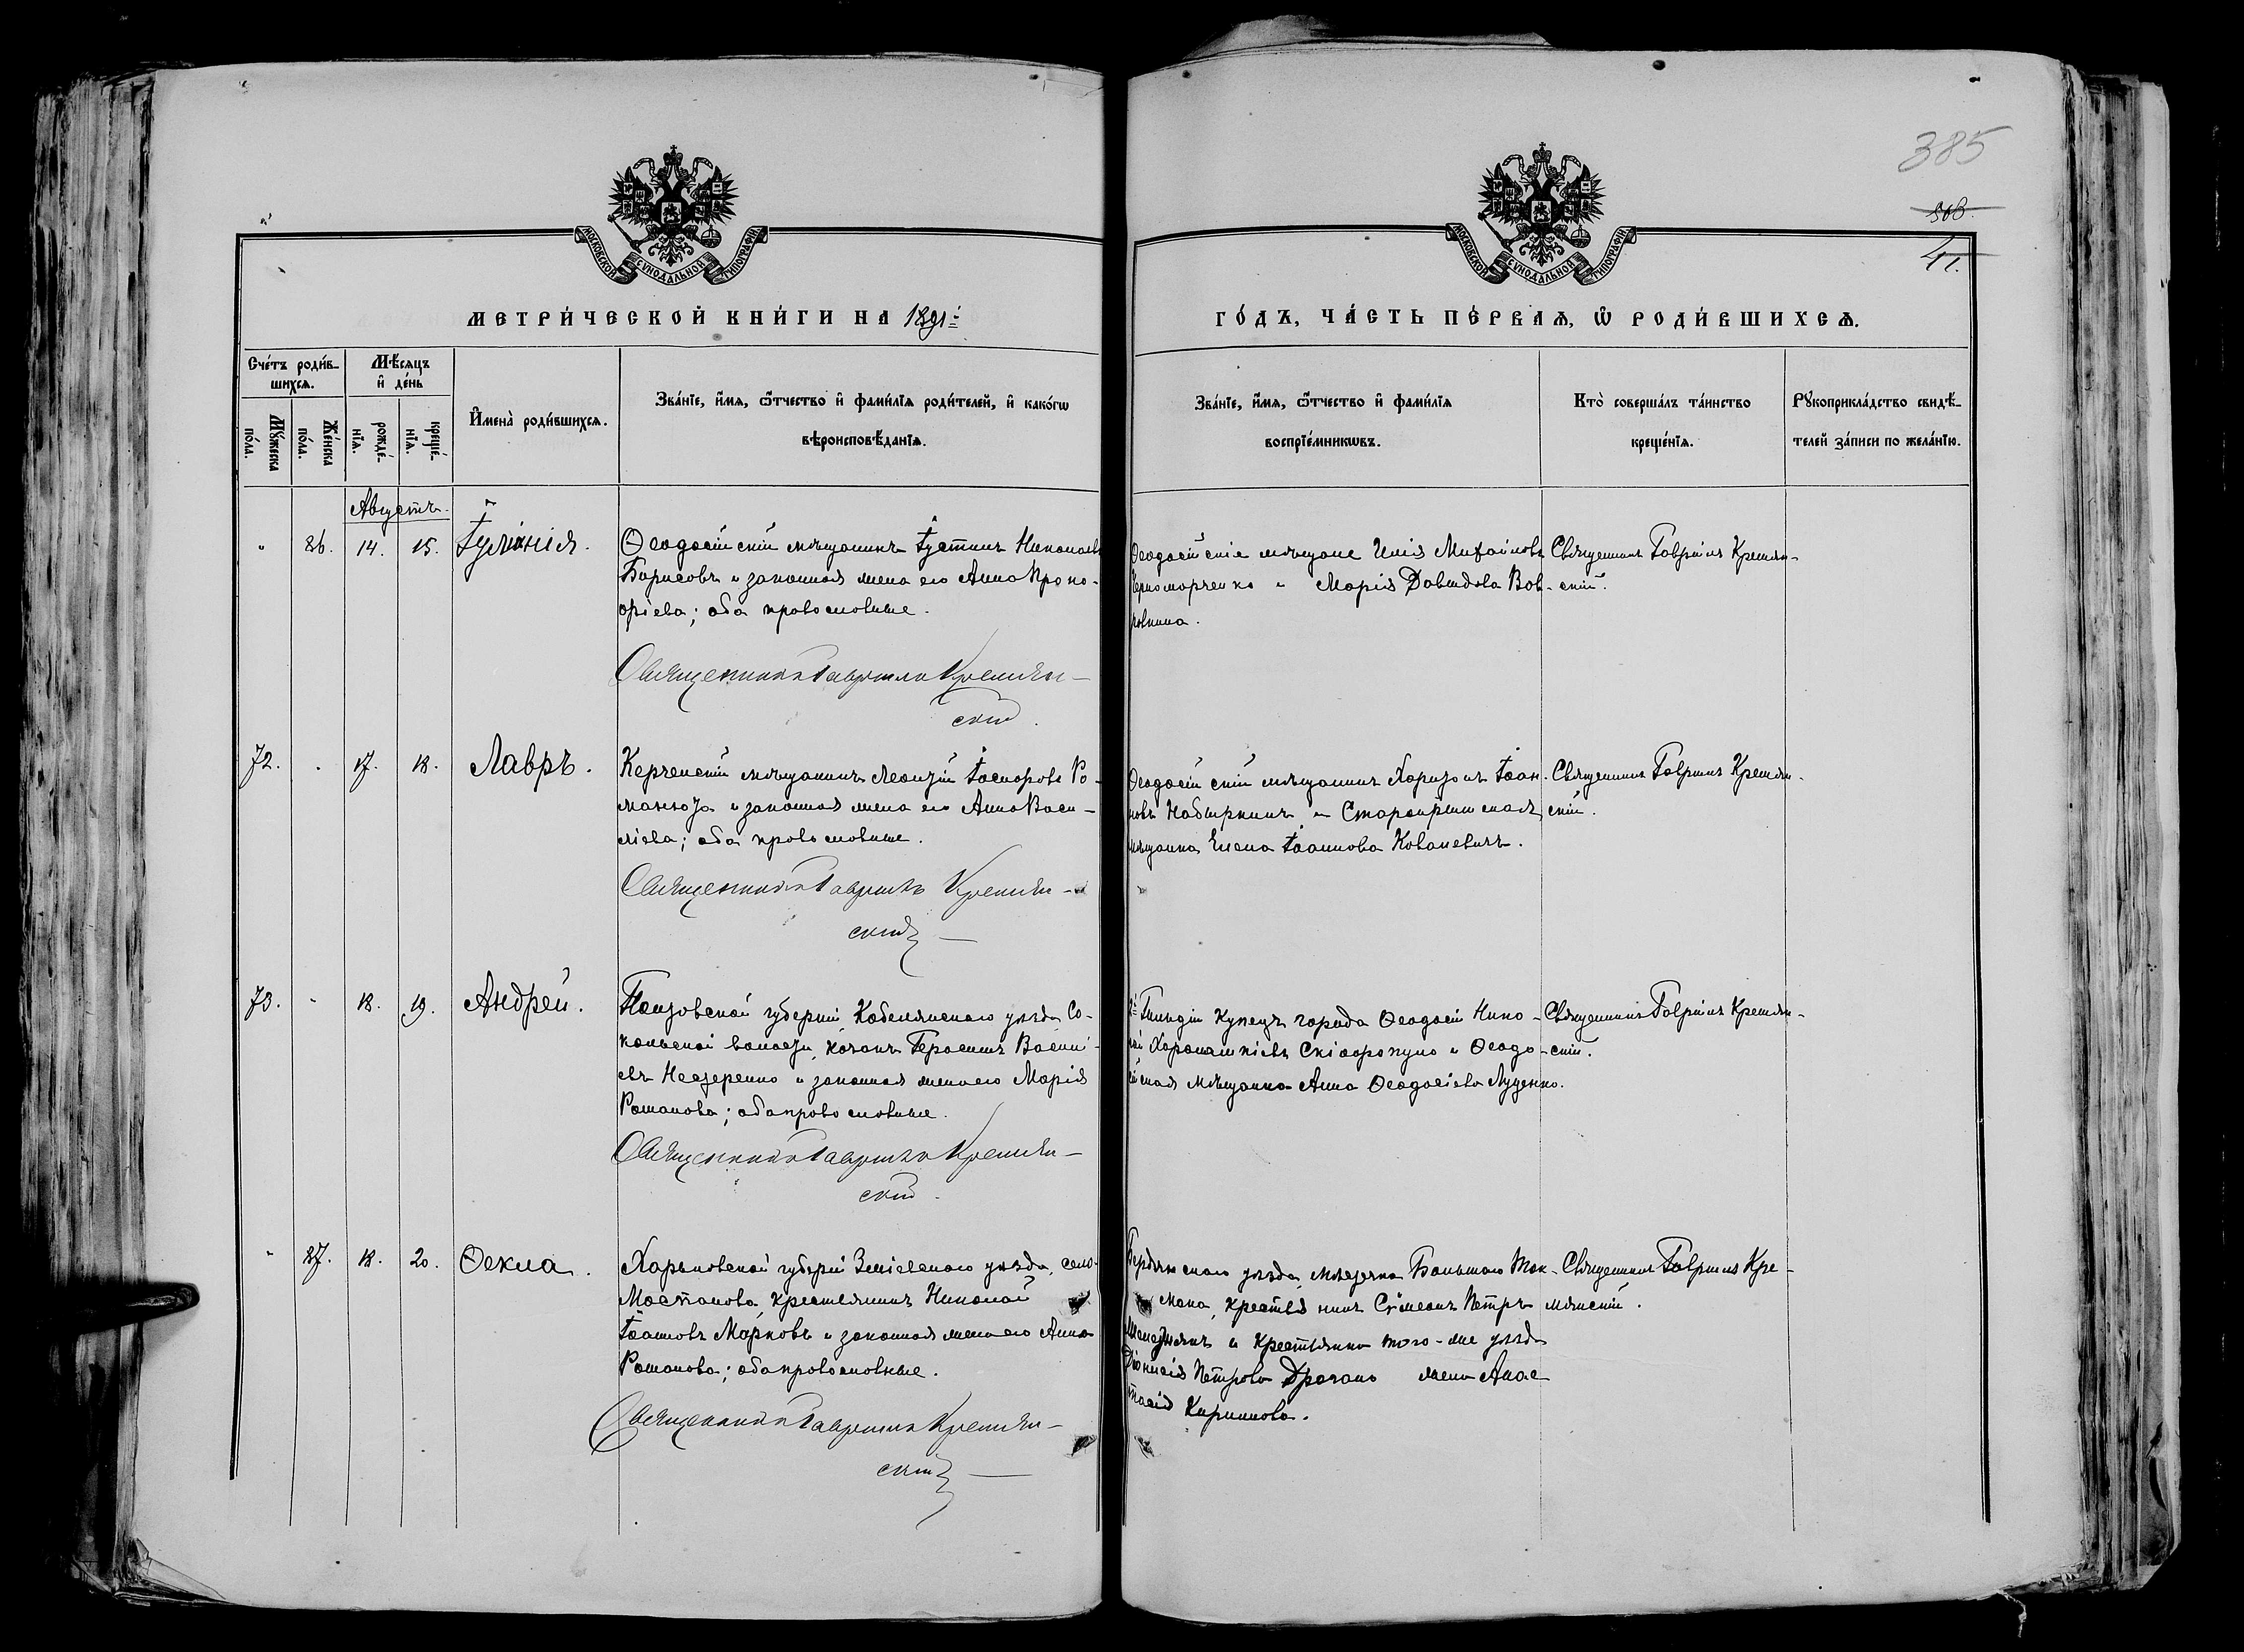 385
41.
МОСКОВСКОЙ СѴНОДАЛЬНОЙ ТИПОГРАФІИ
МОСКОВСКОЙ СѴНОДАЛЬНОЙ ТИПОГРАФІИ
МЕТРИ́ЧЕСКОЙ КНИ́ГИ НА 1891й
ГО́ДЪ, ЧА́СТЬ ПЕ́РВАЯ, Ѿ РОДИ́ВШИХСЯ.
Сче́тъ роди́в-
шихся.
Мѣ́сяцъ
и де́нь
Му́жеска
по́ла.
Же́нска
по́ла.
рожде́-
нїя.
креще́-
нїя.
Имена̀ роди́вшихся.
Зва́нїе, и́мя, ѻ́тчество и фами́лїя роди́телей, и како́гѡ
вѣроисповѣ́данїя.
Зва́нїе, и́мя, ѻ́тчество и фами́лїя
воспрїе́мникѡвъ.
Кто̀ соверша́лъ та́инство
креще́нїя.
Рꙋкоприкла́дство свидѣ́-
телей за́писи по жела́нїю.
Августъ.
86. 14. 15. Іуліанія.
Ѳеодосійскій мѣщанинъ Іустинъ Николаевъ
Борисовъ и законная жена его Анна Проко-
фіева; оба православные.
Священникъ Гавріилъ Кремян-
скій.
Ѳеодосійскіе мѣщане Илія Михайловъ
Черноморченко и Марія Давидова Вов-
Священникъ Гавріилъ Кремян-
скій.
72. 17. 18. Лавръ.
Керченскій мѣщанинъ Леонтій
и законная жена его Анна Васи-
ліева; оба православные.
Священникъ Гавріилъ Кремян-
скій
Ѳеодосійскій мѣщанинъ Харитонъ Іоан-
новъ Набыркинъ и Старокрымская
мѣщанка Елена Іоаннова Ковалевичъ.
Священникъ Гавріилъ Кремян-
скій.
73. 18. 19. Андрей.
Полтовской губерніи, Кобелякскаго уѣзда Со-
кольской волости, козакъ Герасимъ Василі-
евъ Нестеренко и законная жена его Марія
Романова; оба православные.
Священникъ Гавріилъ Кремян-
скій.
Гильдіи купецъ города Ѳеодосіи Нико-
лай и Ѳеодо-
сійская мѣщанка Анна Ѳеодосіева Луценко.
Священникъ Гавріилъ Кремян-
скій.
87. 18. 20. Ѳекла.
Харьковской губерніи Зміевскаго уѣзда, села
крестьянинъ Николай
Іоанновъ Марковъ и законная жена его Анна
Романова; оба православные.
Священникъ Гавріилъ Кремян-
скій
Бердянскаго уѣзда, мѣстечка Большаго Ток-
мака, крестьянинъ Сѵмеонъ Петръ
и крестьянина того-же уѣзда
Діонисія Петрова жена Анас-
тасія Кириллова.
Священникъ Гавріилъ Кре-
мянскій.